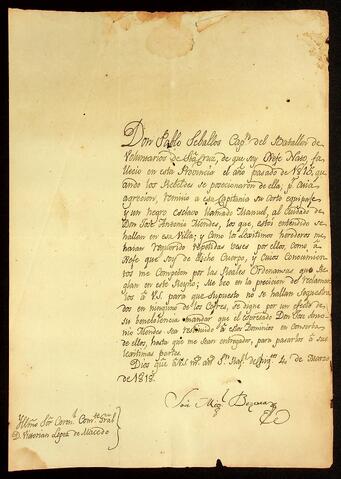 Don Pablo Seballos Capn. del Batallon de
Voluntarios de Sta. Cruz, de que soy Gefe Nato, fa
llecio en esta Provincia el año pasado de 1816, qu
ando los Rebeldes se posecionaron de ella; pr. cuia
agrecion, remitio a esa Capitania su corto equipaje
y un negro esclavo llamado Manuel, al cuidado de
Don José Antonio Mendes, los que, estoy entendido se
hallan en esa Villa; y como los lexitimos herederos me
havian requerido repetidas veces por ellos, como á
Gefe que soy de dicho Cuerpo, y cuios Conocimien
tos me Competen por las Reales Ordenansas que Re
glan en este Reyno; Me veo en la precicion de reclamar
los á V.S. para que supuesto no se hallan Sequestra
dos en ninguno de los Cofres, se digne por un efecto de
su beneficencia mandar que el expresado Don José Anto
nio Mendes sea restituido a esos Dominios en consorbio
de ellos, hasta que me sean entregados, para pasarlos a sus
lexitimas partes.
Dios gue. á V.S. ms. as. Sn. Rafl. de 4, de Marzo
de 1818.
José Migl. Becerra
Illmo Sor. Coronl. Comte. Gral
D.